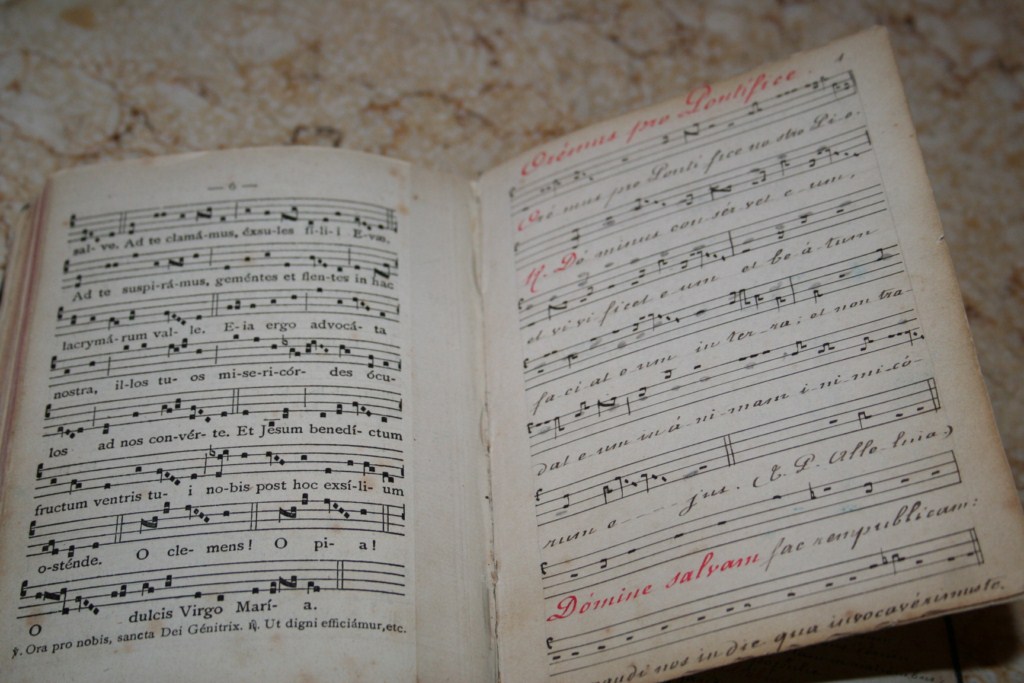 — 6 —
sal- ve. Ad te clamá-mus, éxsu-les fí-li-i E-væ.
Ad te suspi-rá-mus, geméntes et flen-tes in hac
lacrymá-rum val- le. E-ia ergo advocá-ta
nostra, il-los tu- os mi-se-ri-cór- des ócu-
los ad nos con-vér- te. Et Jesum benedí-ctum
fructum ventris tu- i no-bis post hoc exsí-li- um
o-sténde. O cle- mens! O pi- a!
O dulcis Virgo Marí- a.
℣. Ora pro nobis, sancta Dei Génitrix. ℟. Ut digni efficiámur, etc.
Orémus pro Pontífice
Oré mus pro Pontí fice no stro Pi-o.
℟. Dó minus con-sér vet e-um,
et vi-ví-ficet e-um et be-á-tum
fa-ci-at e-um in ter-ra; et non tra-
dat e-um in á-ni-mam i-ni-mi-có-
rum e- - - -jus. (T. P. Alle-luia.)
Dómine salvam fac rempublicam:
nos in die qua invocavérimus te.